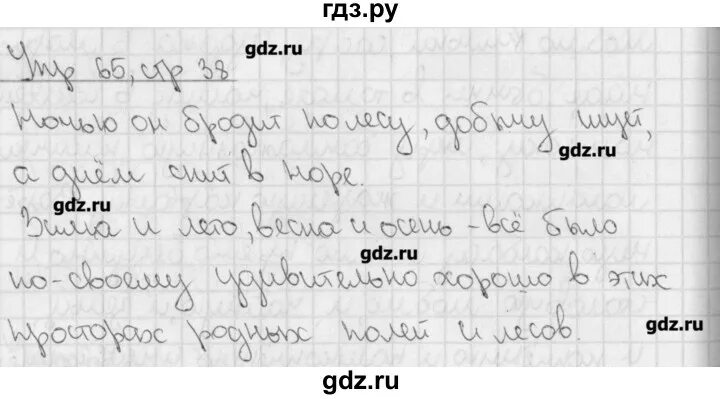 гдз.ру
gdz.ru
Упр 65, стр 38
Ночью он бродит по лесу, добычу ищет,
gdz.ru
а днём спит в норе.
gdz.ru
Зима и лето, весна и осень - всё было
gdz.ru
по-своему удивительно хорошо в этих
просторах родных полей и лесов.
gdz.ru
gdz.ru